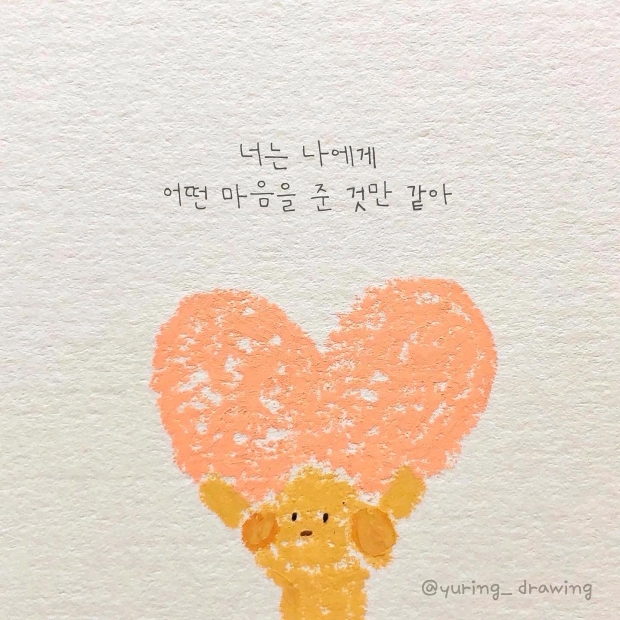 너는 나에게
어떤 마음을 준 것만 같아
@yuring_drawing